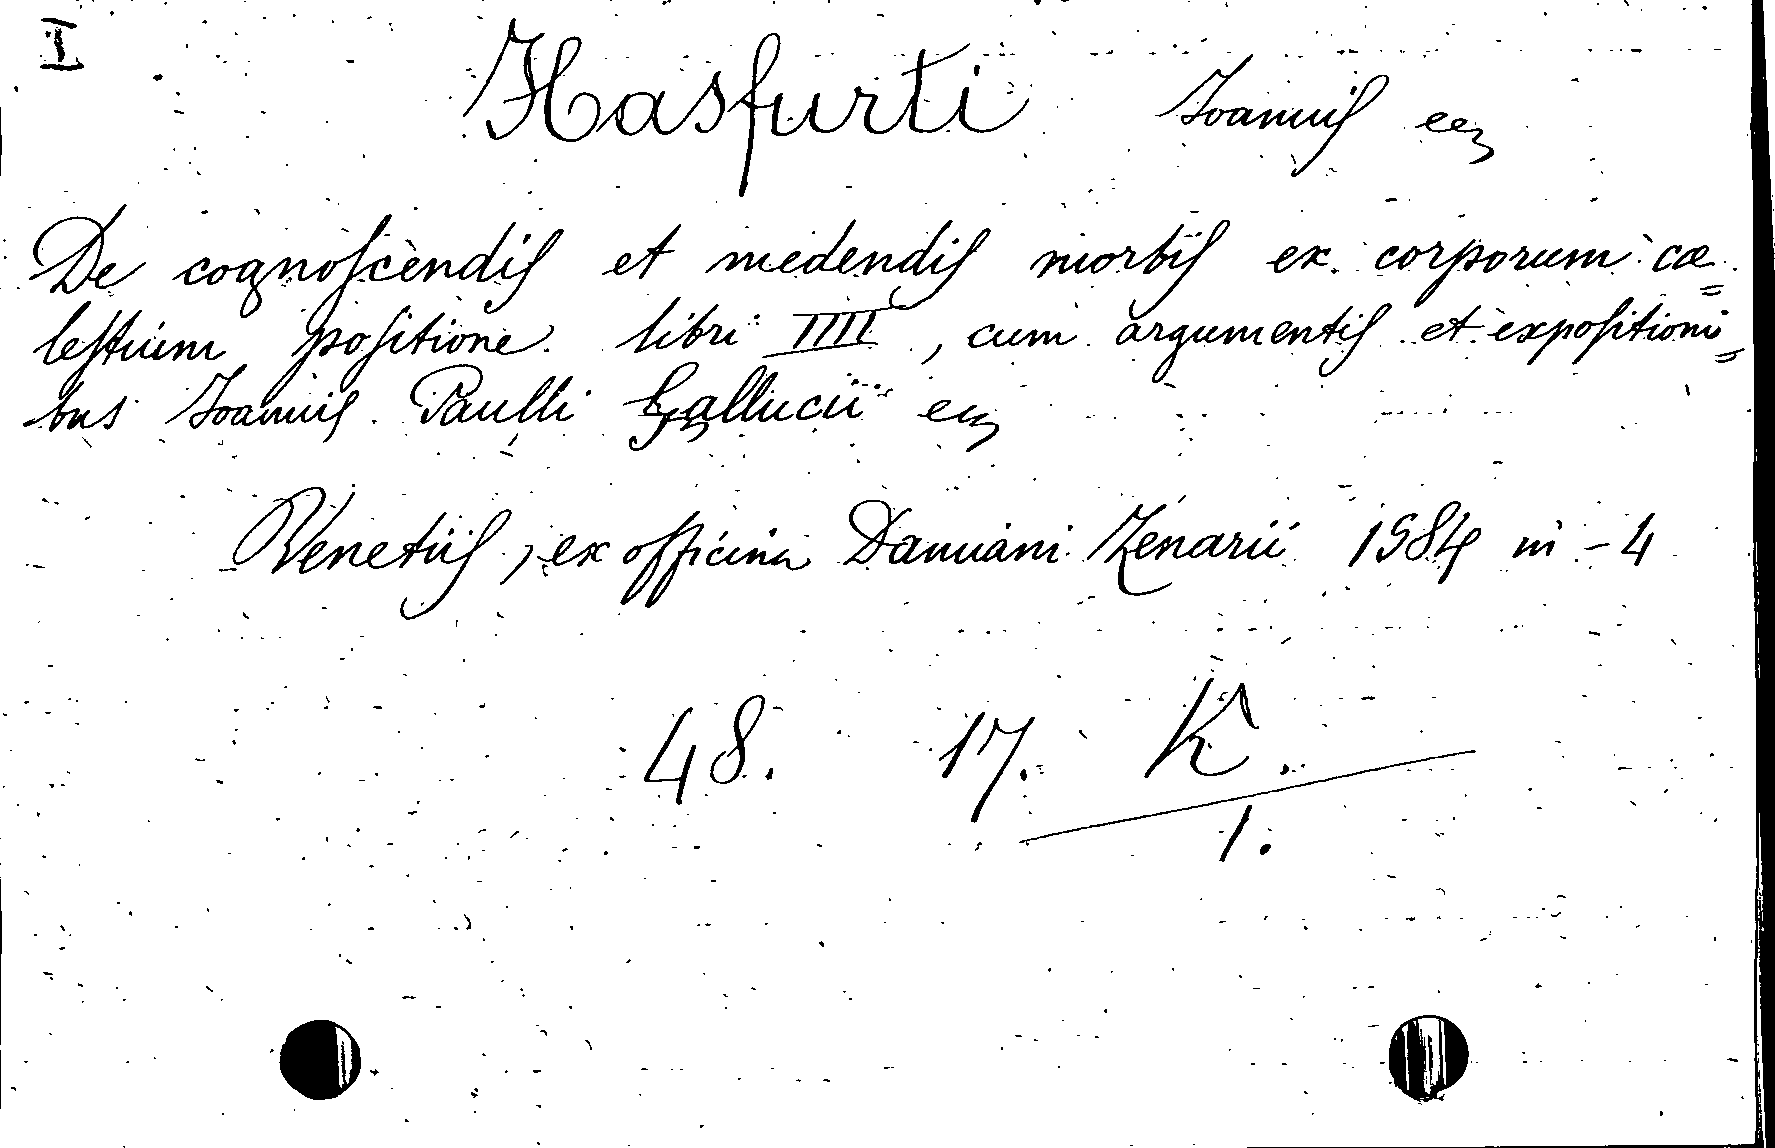 I
Hasfurti Ioannis ecc
De cognoscendis et medendis morbis ex corporum cœ=
lestium positione libri IIII, cum argumentis et expositioni=
bus Ioannis Paulli Gallucii ecc
Venetiis, ex officina Damiani Zenarii 1584 in-4
48. 17. K.
1.